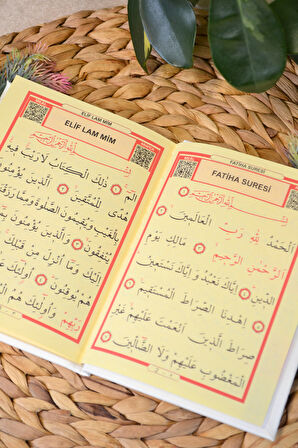 FATİHA SURESİ
FATİHA SURESİ
بِسْمِ اللّٰهِ الرَّحْمٰنِ الرَّحِيمِ
اَلْحَمْدُ لِلّٰهِ رَبِّ الْعَالَمِينَ
اَلرَّحْمٰنِ الرَّحِيمِ مَالِكِ يَوْمِ
الدِّينِ اِيَّاكَ نَعْبُدُ وَاِيَّاكَ نَسْتَعِينُ
اِهْدِنَا الصِّرَاطَ الْمُسْتَقِيمَ
صِرَاطَ الَّذِينَ اَنْعَمْتَ عَلَيْهِمْ غَيْرِ
الْمَغْضُوبِ عَلَيْهِمْ وَلَا الضَّالِّينَ
ELİF LAM MİM
ELİF LAM MİM
بِسْمِ اللّٰهِ الرَّحْمٰنِ الرَّحِيمِ
الٓمٓ ذٰلِكَ الْكِتَابُ لَا رَيْبَ فِيهِ
هُدًى لِلْمُتَّقِينَ اَلَّذِينَ يُؤْمِنُونَ
بِالْغَيْبِ وَيُقِيمُونَ الصَّلٰوةَ وَمِمَّا
يُنْفِقُونَ وَالَّذِينَ يُؤْمِنُونَ
اِلَيْكَ وَمَا اُنْزِلَ مِنْ قَبْلِكَ
هُمْ يُوقِنُونَ اُولٰئِكَ
رَبِّهِمْ وَاُولٰئِكَ هُمُ